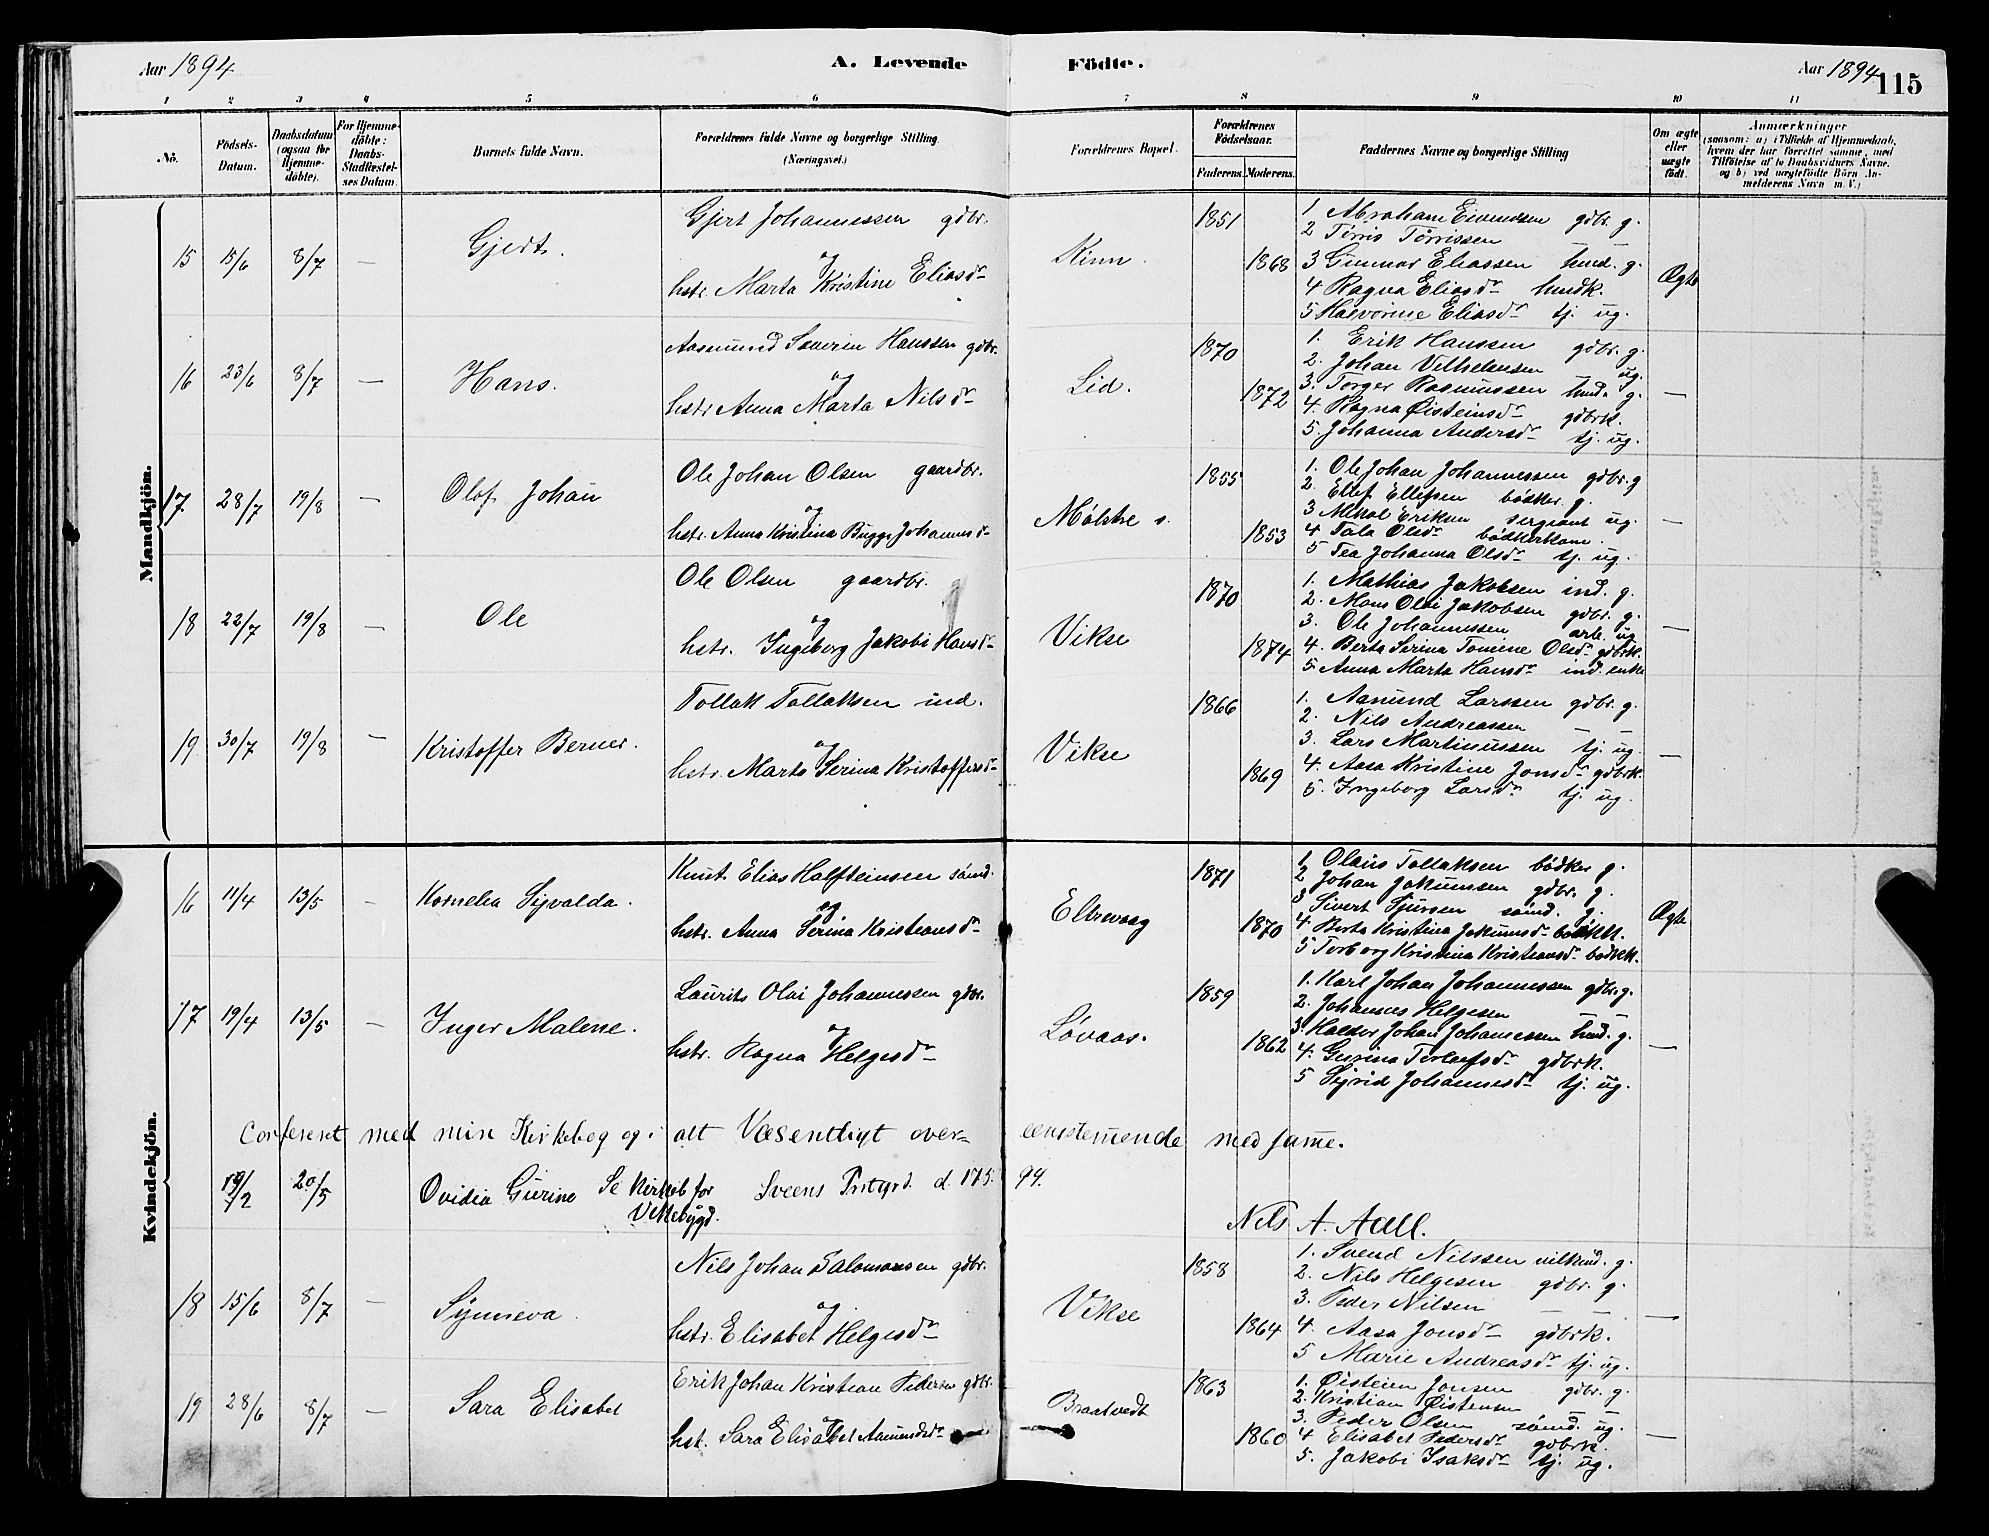 Aar 1894
A. Levende
Födte.
Aar 1894
115
1 2 3 4 5 6 7 8 9 10 11
No.
Födsels-Datum.
Daabsdatum (ogsaa for Hjemme-döbte).
For Hjemme-döbte: Daabs-Stadfæstel-ses Datum.
Barnets fulde Navn.
Forældrenes fulde Navne og borgerlige Stilling
(Næringsvei.)
Forældrenes Bopæl.
Forældrenes Födselsaar.
Faderens. Moderens.
Faddernes Navne og borgerlige Stilling
Om ægte eller uægte födt.
Anmærkninger
(saasom: a) i Tilfælde af Hjemmedaab,
hvem der har forrettet samme, med
Tilföielse af to Daabsvidners Navne,
og b) ved uægtefödte Börn An-
melderens Navn m. V.)
Mandkjön.
15 15/6 8/7 — Gjert.
Gjert Johannessen gdbr.
og
hstr. Marta Kristine Eliasdr
Kinn
1851
1868
1 Abraham Eivendsen gdbr. g.
2 Tørris Tørrissen — —
3 Gunnar Eliassen husd. g.
4 Ragna Eliasdr husdk.
5 Halvorine Eliasdr tj. ug.
Ægte
16 23/6 8/7 — Hans.
Aasmund Severin Hanssen gdbr.
og
hstr Anna Marta Nilsdr
Lid.
1870
1872
1. Erik Hanssen gdbr. g.
2. Johan Vilhelmsen ug.
3. Torger Rasmussen husd. g.
4. Ragna Øisteinsdr gdbrk.
5. Johanna Andersdr tj. ug.
—
17 28/7 19/8 — Olaf Johan
Ole Johan Olsen gaardbr.
og
hstr. Anna Kristina Bugge Johannesdr
Mølstre s.
1855
1853
1. Ole Johan Johannessen gdbr. g
2. Ellef Ellefsen bødker g.
3 Mikal Eriksen sergeant ug.
4 Tala Olsdr bødkerkone.
5 Tea Johanna Olsdr tj. ug.
—
18 22/7 19/8 — Ole
Ole Olsen gaardbr.
og
hstr. Ingeborg Jakobi Hansdr
Vikse
1870
1874
1. Mathias Jakobsen ind. g.
2. Mons Olai Jakobsen gdbr. g.
3. Ole Johannessen arb. ug
4. Berta Serina Tomine Olsdr gdbrk.
5. Anna Marta Hansdr ind. enke
—
19. 30/7 19/8 — Kristoffer Berner.
Tollak Tollaksen ind.
og
hstr. Marta Serina Kristoffersdr
Vikse
1866
1869
1. Aamund Larssen gdbr. g.
2. Nils Andreassen — —
3. Lars Martinussen tj. ug.
4. Aasa Kristine Jonsdr gdbrk.
5. Ingeborg Larsdr tj. ug.
—
Kvindekjön.
16 11/4 13/5 - Kornelia Sigvalda.
Knut Elias Halfteinsen sømd.
og
hstr. Anna Serina Kristiansdr
Eltrevaag
1871
1870
1. Olaus Tollaksen bødker g.
2 Johan Jakumsen gdbr. g.
3 Sivert Sjursen sømd. g.
4. Berta Kristina Jakumsdr bødkk.
5 Torborg Kristina Kristiansdr bødkek.
Ægte
17 19/4 13/5 — Inger Malene.
Laurits Olai Johannessen gdbr.
og
hstr. Ragna Helgesdr
Løvaas.
1859
1862
1. Karl Johan Johannessen gdbr. g.
2. Johannes Helgesen — —
3. Haldor Johan Johannessen husd. g.
4. Gurina Torleifsdr gdbrk.
5 Sigrid Johannesdr tj. ug.
—
Confereret med min Kirkebog og i alt Væsentligt over- eensstemmende med samme.
Sveens Prstgrd. d. 17 5. 94.
Nils A. Aall.
19/2 20/5 Ovidia Gurine Se Kirkeb for
Vikebygd.
18 15/6 8/7 — Synneva.
Nils Johan Salomonsen gdbr.
og
hstr. Elisabet Helgesdr
Vikse
1858
1864
1. Svend Nilssen g.
2. Nils Helgesen gdbr. g.
3. Peder Nilsen — —
4. Aasa Jonsdr gdbrk.
5 Marie Andreasdr tj. ug.
—
19 28/6 8/7 — Sara Elisabet
Erik Johan Kristian Pedersen gdbr.
og
hst. Sara Elisabet Aamundsdr
Braatvedt
1863
1860
1. Øistein Jonsen gdbr. g.
2. Kristian Øistensen — —
3. Peder Olsen sømd. ug.
4 Elisabet Pedersdr gdbrk.
5. Jakobi Isaksdr tj. ug.
—